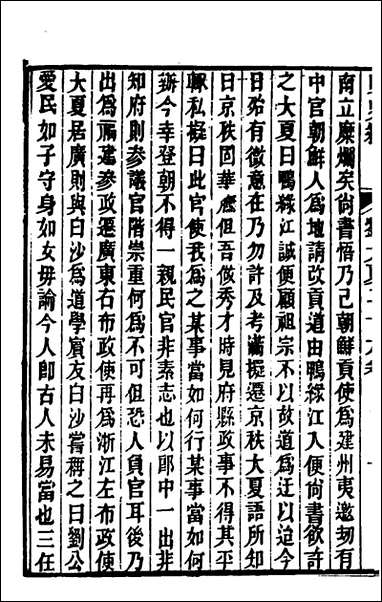 南立糜爛矣尙書悟乃已朝鮮貢使爲建州夷邀刼有
中官朝鮮人爲地請改貢道由鴨綠江人便尙書欲許
之大夏曰鴨綠江誠便顧祖宗不以故道爲迂以迨今
日殆有微意在乃勿許及考滿擬遷京秩大夏語所知
曰京秩固華應但吾做秀才時見府縣政事不得其平
輒私擬曰此官使我爲之某事當如何行某事當如何
辦今幸登朝不得一親民官非素志也以郎中一出非
知府則參議官階崇重何爲不可但恐人負官耳後乃
出爲福建參政遷廣東右布政使再爲浙江左布政使
大夏居廣則與白沙爲道學賓友白沙嘗稱之曰劉公
愛民如子守身如女毋論今人卽古人未易當也三任